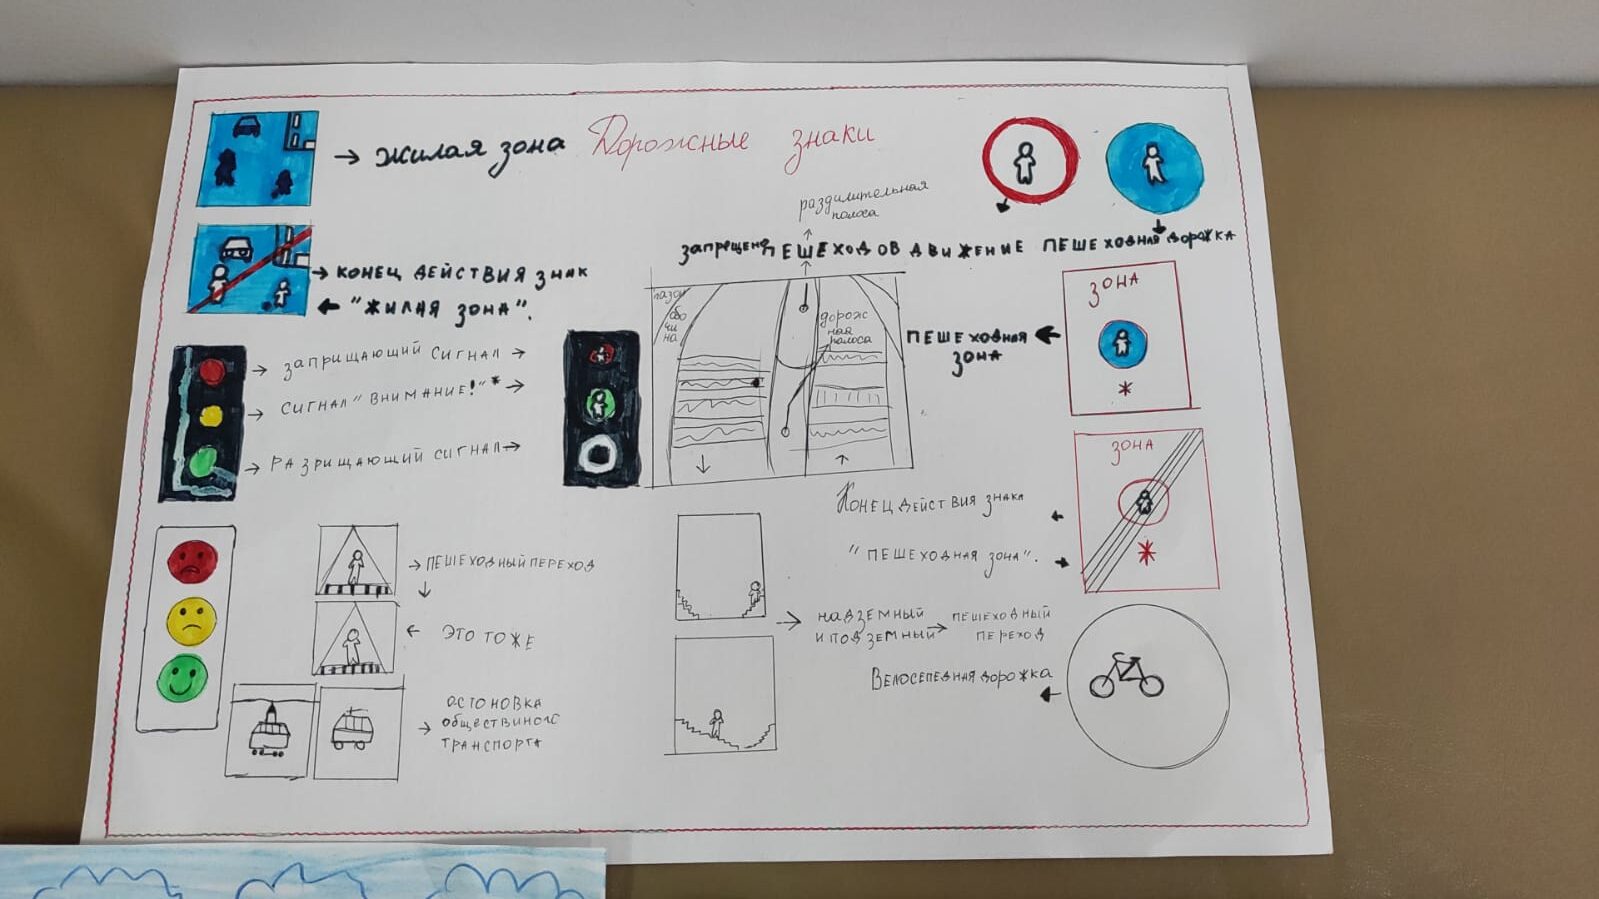 жилая зона
Дорожные знаки
раздилительная
полоса
запрещено ПЕШЕХОДОВ ДВИЖЕНИЕ
ПЕШЕХОДНАЯ ДОРОЖКА
КОНЕЦ ДЕЙСТВИЯ ЗНАК
"ЖИЛАЯ ЗОНА".
газон
обо
чи
на
дорож
ная
полоса
ЗОНА
*
ПЕШЕХОДНАЯ
ЗОНА
ЗАПРИЩАЮЩИЙ СИГНАЛ
СИГНАЛ "ВНИМАНИЕ!"*
РАЗРИЩАЮЩИЙ СИГНАЛ
ЗОНА
*
КОНЕЦ ДЕЙСТВИЯ ЗНАКА
"ПЕШЕХОДНАЯ ЗОНА".
ПЕШЕХОДНЫЙ ПЕРЕХОД
ЭТО ТОЖЕ
НАДЗЕМНЫЙ
И ПОДЗЕМНЫЙ
ПЕШЕХОДНЫЙ
ПЕРЕХОД
ВЕЛОСЕПЕДНАЯ ДОРОЖКА
ОСТОНОВКА
ОБЩЕСТВИНОГО
ТРАНСПОРТА